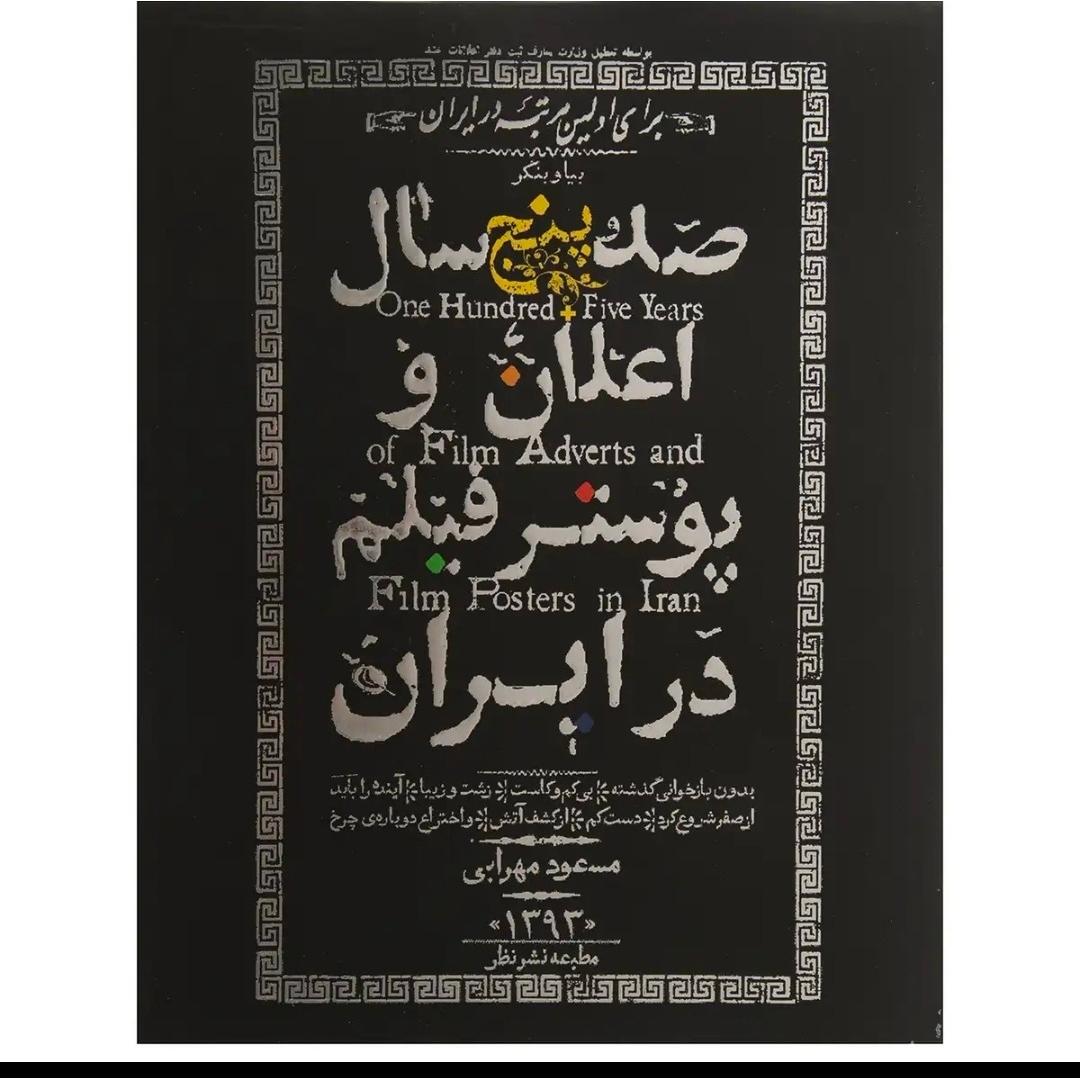 بواسطه تعطیل وزارت معارف ثبت دفتر اعلانات نشد
برای اولین مرتبه در ایران
بیا و بنگر
صد و پنج سال
One Hundred + Five Years
اعلان و
of Film Adverts and
پوستر فیلم
Film Posters in Iran
در ایران
بدون بازخوانی گذشته بی‌کم و کاست زشت و زیبا آینده را باید
از صفر شروع کرد دست کم از کشف آتش و اختراع دوباره‌ی چرخ
مسعود مهرابی
«۱۳۹۳»
مطبعه نشر نظر